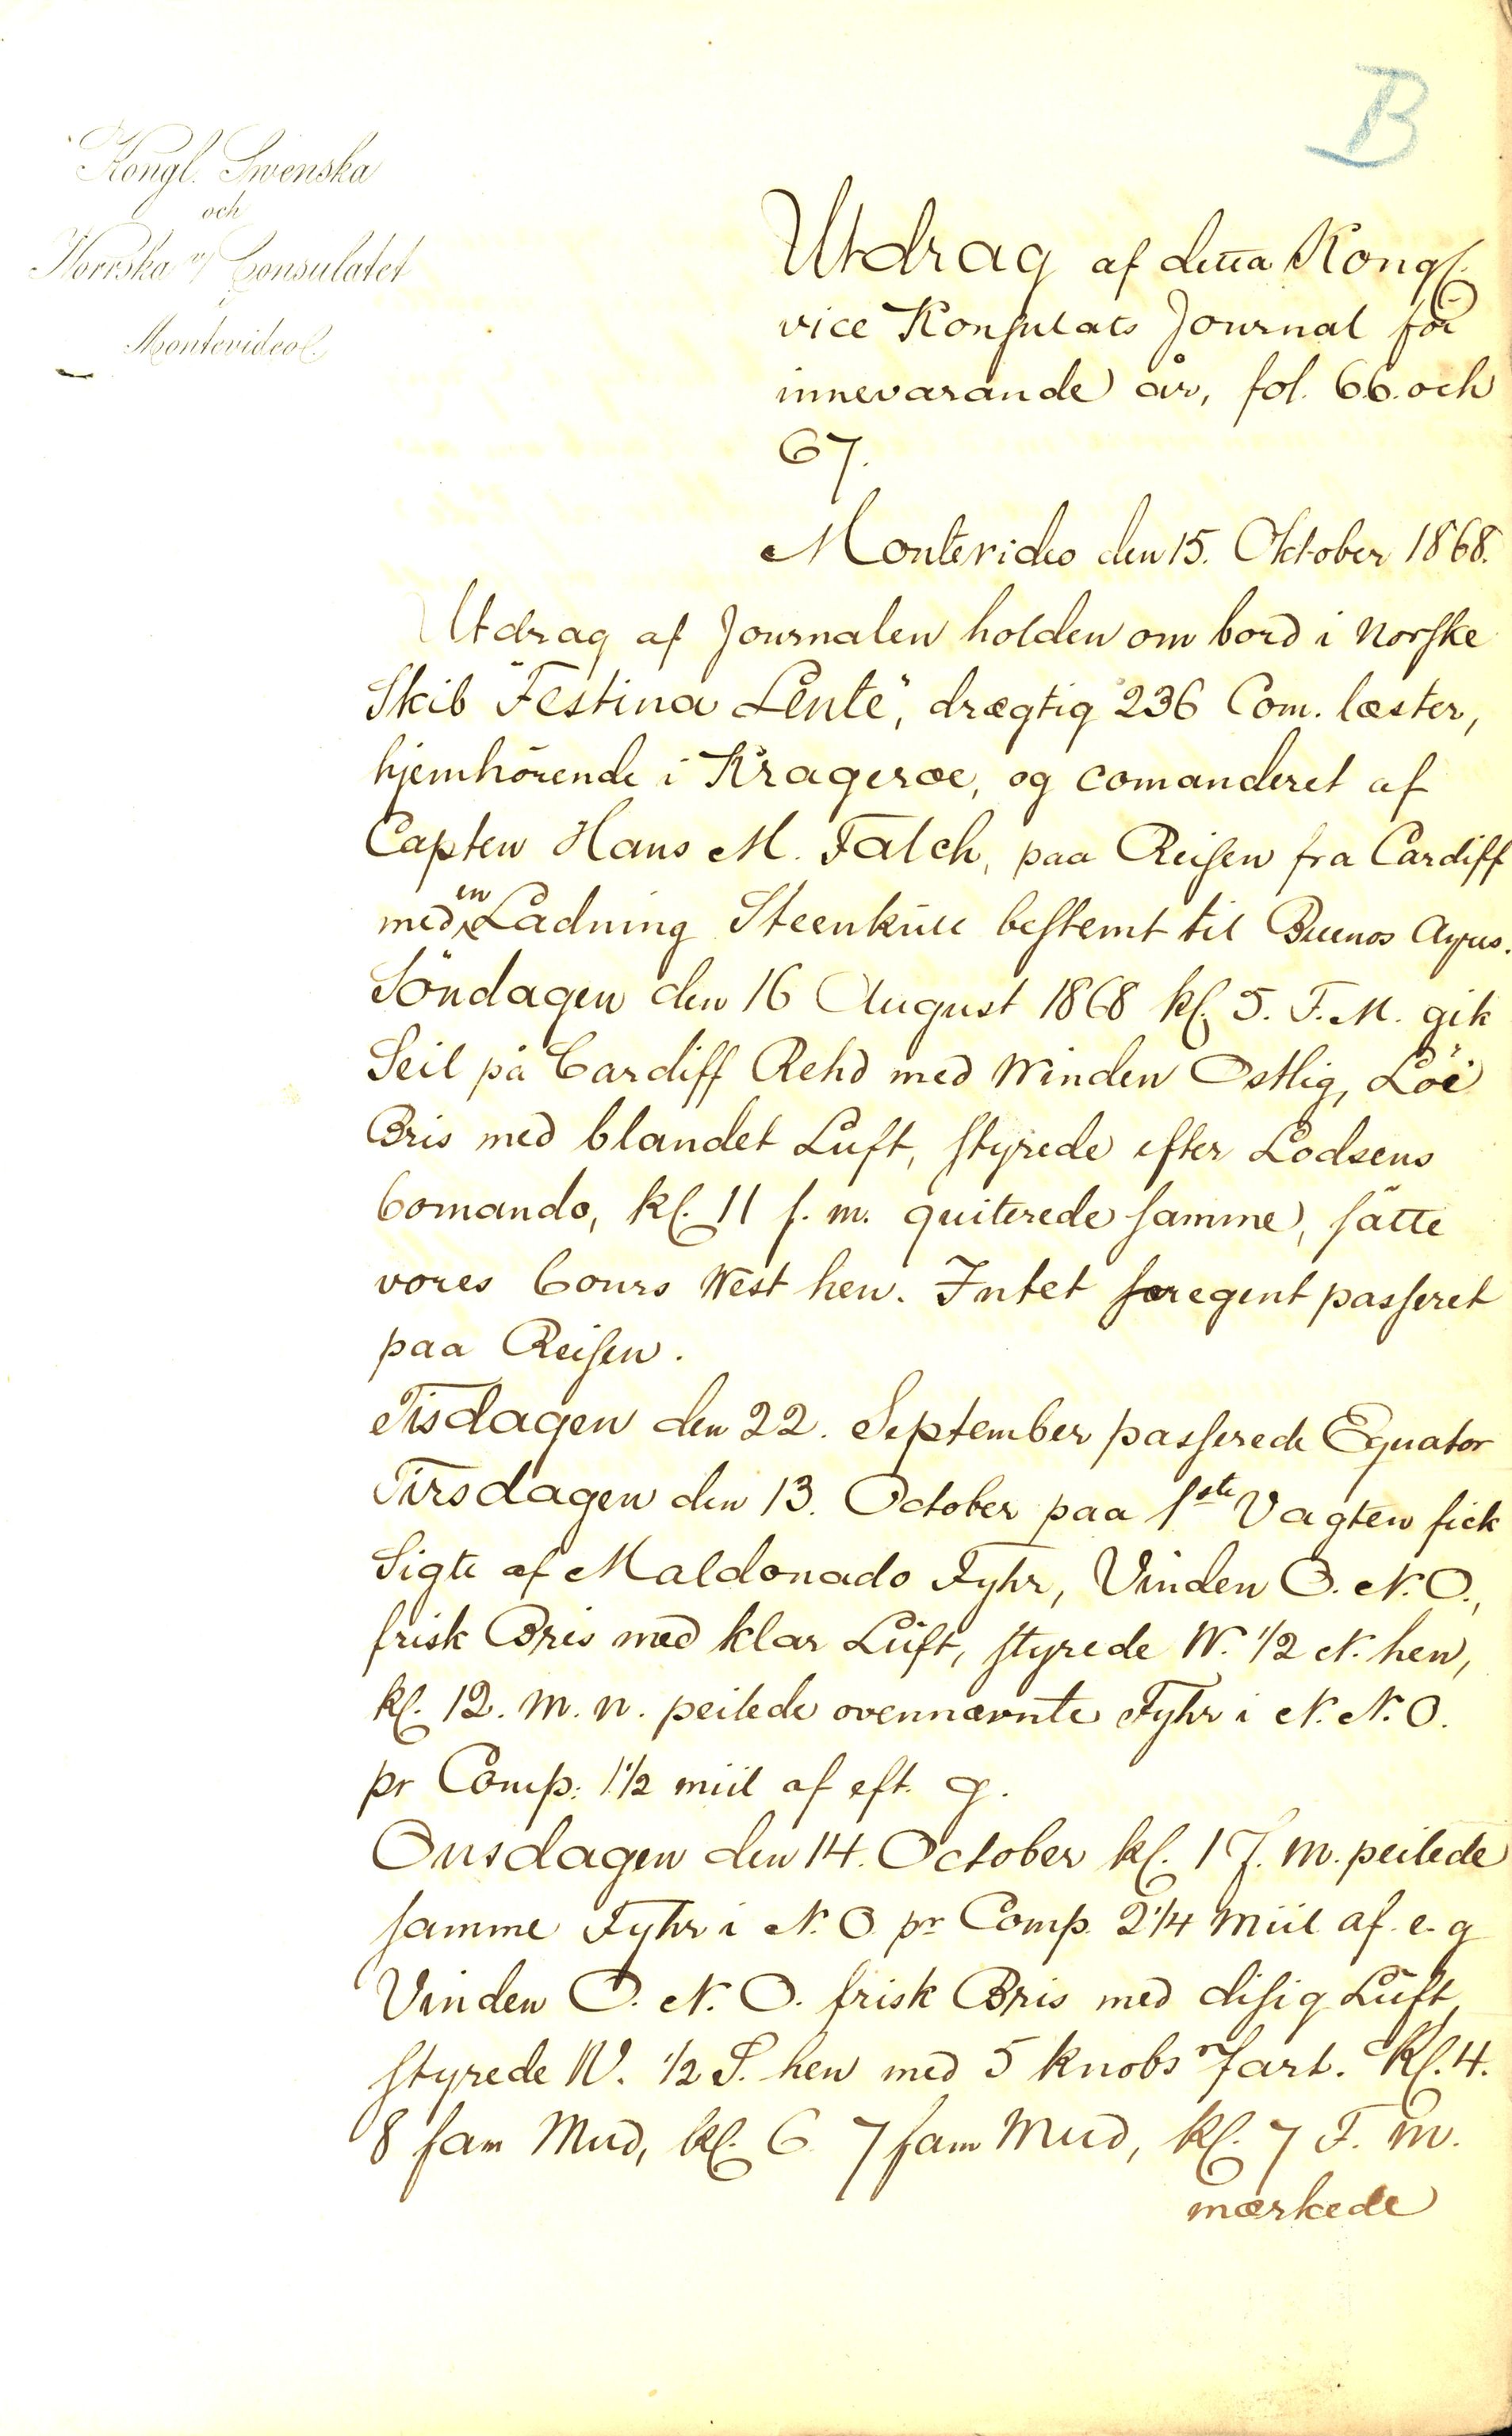 B
Kongl. Swenska
och
Norrska v/ Consulatet
i
Montevideo.
Utdrag af detta Kongl.
vice Konsulats Journal för
innevarande år, fol. 66. och
67.
Montevideo den 15. Oktober 1868.
Utdrag af Journalen holden om bord i Norske
Skib "Festina Lente", drægtig 236 Com. læster,
hjemhörende i Krageroe, og comanderet af
Capten Hans M. Falch, paa Reisen fra Cardiff
med en Ladning Steenkull bestemt til Buenos Ayres.
Söndagen den 16 August 1868 kl. 5. F. M. gik
Seil på Cardiff Rehd med Winden Ostlig, Löi
Bris med blandet Luft, styrede efter Lodsens
Comando, kl. 11 f. m. quiterede samme, sätte
vores Cours West hen. Intet foregent passeret
paa Reisen.
Tisdagen den 22. September passerede Equator
Tirsdagen den 13. October paa 1ste Vagten fick
Sigte af Maldonado Fyhr, Vinden O. N. O.,
frisk Bris med klar Luft, styrede W. 1/2 N. hen,
kl. 12. M. n. peilede ovennævnte Fyhr i N. N. O.
pr Comp: 1 1/2 miil af eft. g.
Onsdagen den 14. October kl. 1 F. M. peilede
samme Fyhr i N. O pr Comp. 2 1/4 Miil af. e. g
Vinden O. N. O. frisk Bris med disig Luft,
styrede W. 1/2 S. hen med 5 knobs Fart. Kl. 4.
8 fam Mud, kl. 6. 7 fam Mud, kl. 7 F. M.
mærkede